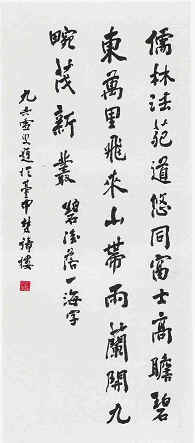 儒林法苑道悠同富士高瞻碧
東萬里飛來山帶雨蘭開九
畹茂新叢 碧後落一海字
九六叟題於臺中楚詩樓